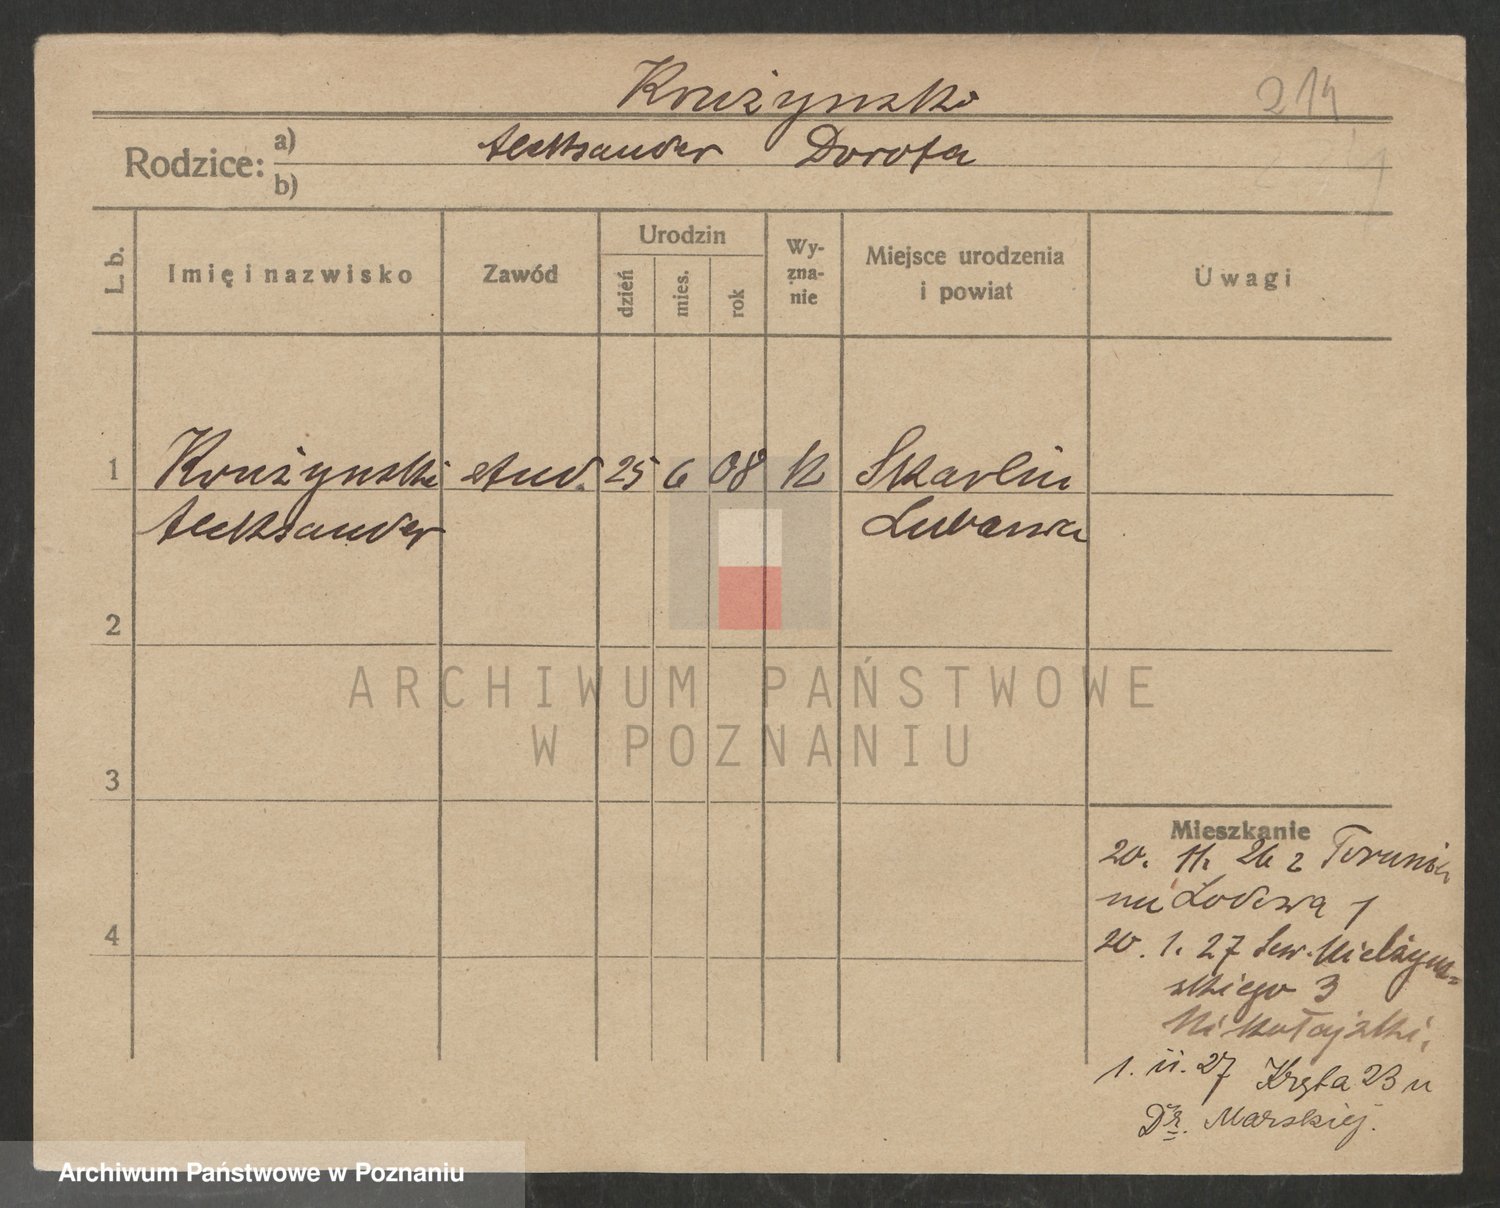 Krużyński
214
Rodzice: a) Aleksander Dorota
b)
L. b.
Imię i nazwisko
Zawód
Urodzin
dzień
mies.
rok
Wy-
zna-
nie
Miejsce urodzenia
i powiat
Uwagi
1 Krużyński stud. 25 6 08 K Skarlin
Aleksander Lubawa
2
3
4
ARCHIWUM PAŃSTWOWE
W POZNANIU
Mieszkanie
20. 11. 26 z Torunia
Lodowa 1
20. 1. 27 Sew. Mielżyń-
skiego 3
Mikołajski.
1. 11. 27 Kręta 23 u
Dr. Marskiej.
Archiwum Państwowe w Poznaniu